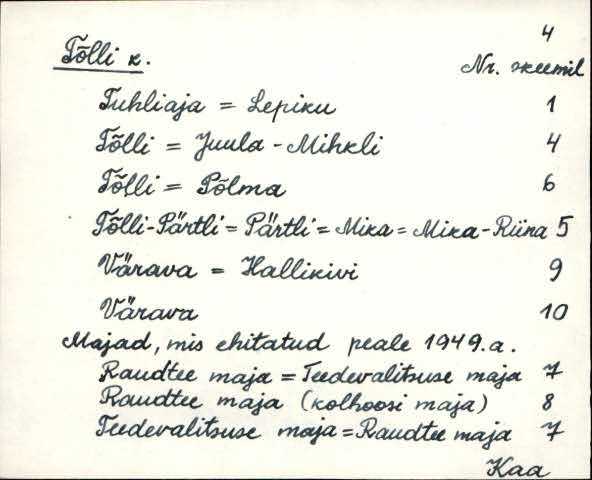 4
Tõlli k.
Nr. skeemil
Tuhliaja = Lepiku 1
Tõlli = Juula-Mihkli 4
Tõlli = Põlma 6
Tõlli-Pärtli = Pärtli = Mika = Mika-Riina 5
Värava = Hallikivi 9
Värava 10
Majad, mis ehitatud peale 1949.a.
Raudtee maja = Teedevalitsuse maja 7
Raudtee maja (kolhoosi maja) 8
Teedevalitsuse maja = Raudtee maja 7
Kaa